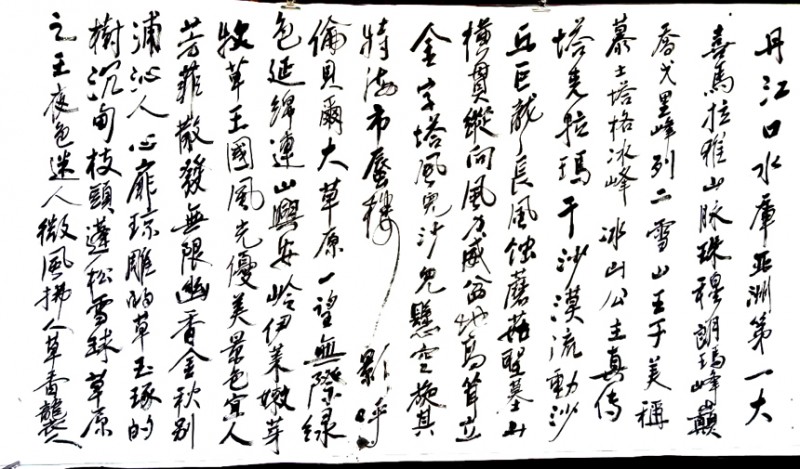 丹江口水庫亞洲第一大
喜馬拉雅山脉珠穆朗瑪峰巔
喬戈里峰列二雪山王子美稱
慕士塔格冰峰 冰山公主真傳
塔克拉瑪干沙漠流動沙
丘巨龍長風蚀蘑菇聖墓山
橫貫縱向風力威盆地高聳立
金字塔風兒沙兒懸空旋其
特海市蜃樓 影呼
倫貝爾大草原一望無際绿
色延綿連山興安岭伊萊嫩芽
牧草王國風光優美景色宜人
芳菲散發無限幽香金秋别
浦沁人心扉琼雕的草玉琢的
樹沉甸枝頭蓬松雪球草原
之王夜色迷人微風拂人草香襲人